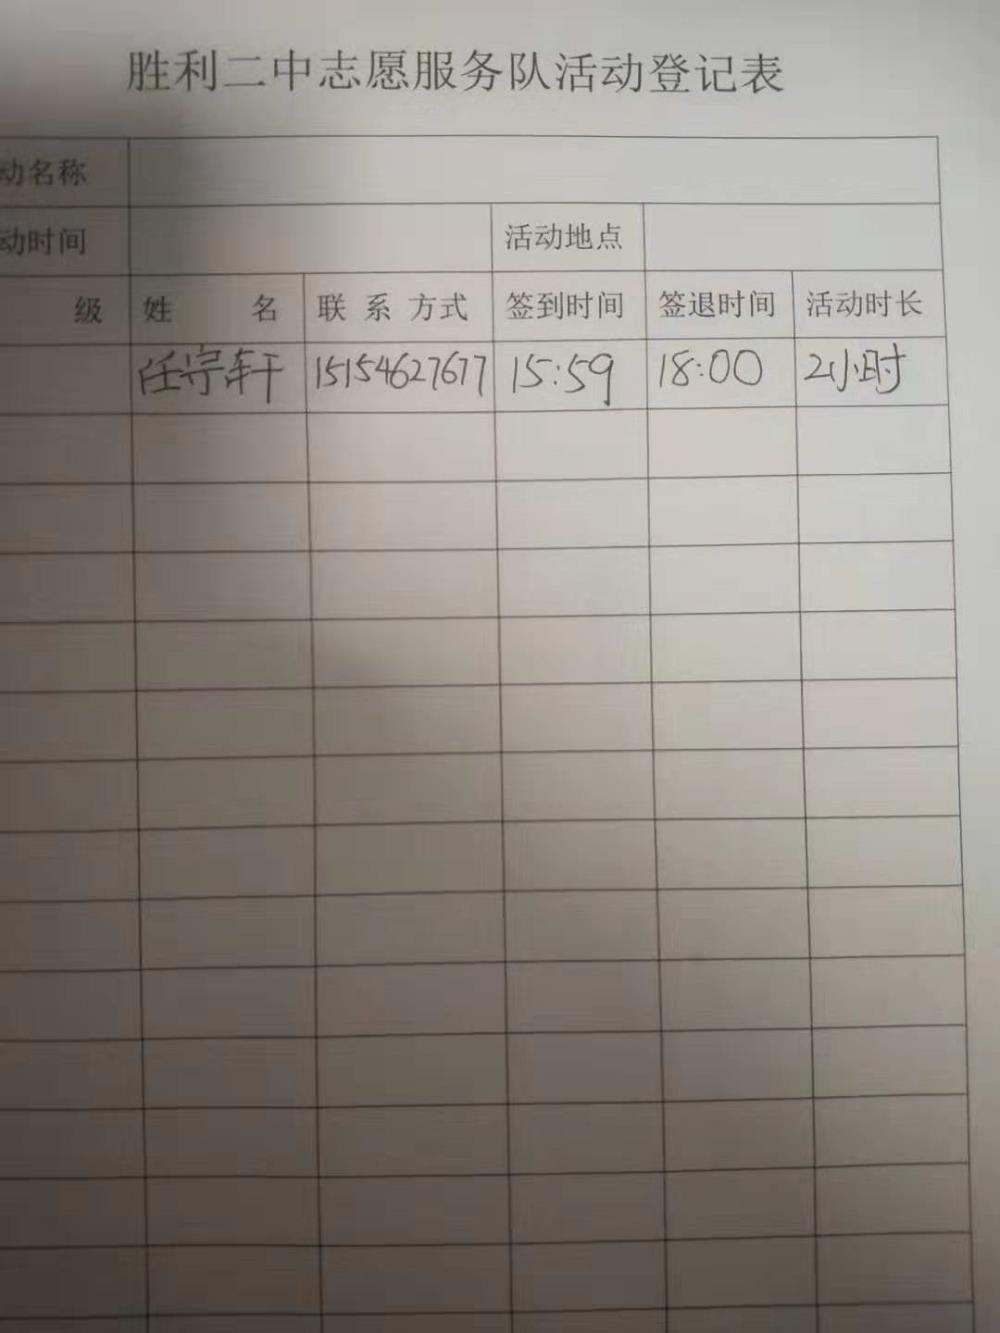 胜利二中志愿服务队活动登记表
动名称
动时间 活动地点
级 姓 名 联 系 方式 签到时间 签退时间 活动时长
任宗轩 15154627677 15:59 18:00 2小时